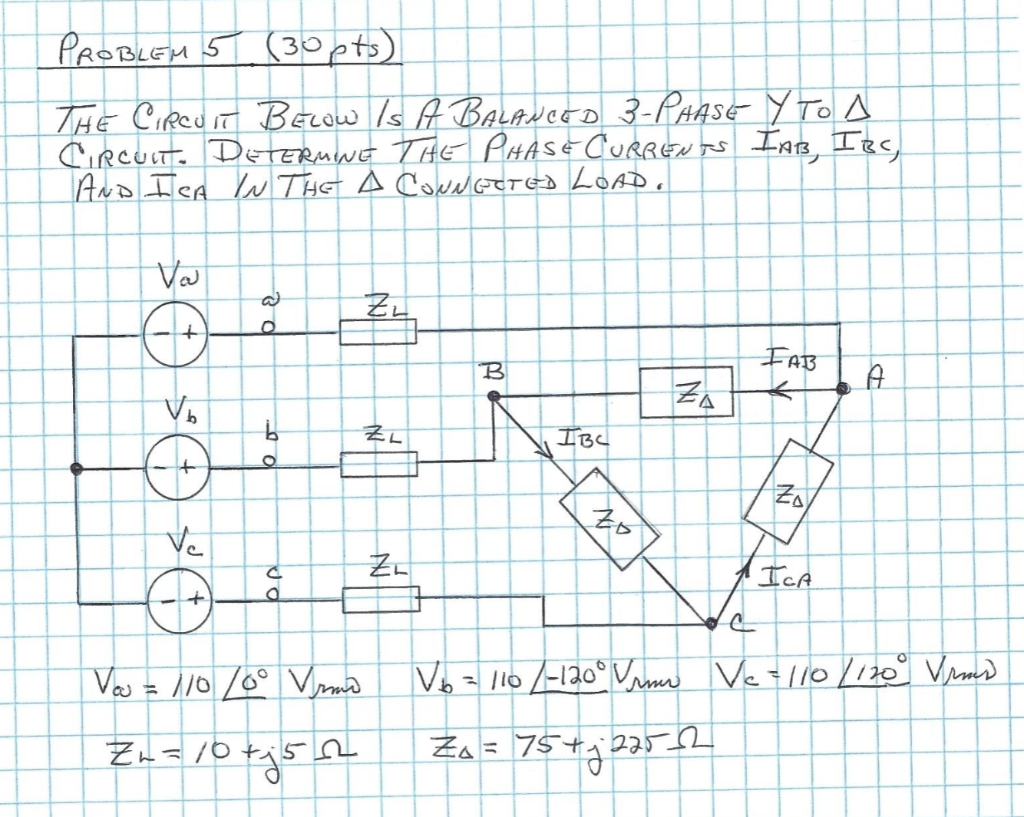 PROBLEM 5 (30 pts)
THE CIRCUIT BELOW IS A BALANCED 3-PHASE Y TO Δ
CIRCUIT. DETERMINE THE PHASE CURRENTS IAB, IBC,
AND ICA IN THE Δ CONNECTED LOAD.
Va
a
ZL
- +
IAB
A
B
ZΔ
Vb
b
ZL
IBC
- +
ZΔ
ZΔ
Vc
c
ZL
ICA
- +
C
Va = 110 /0° Vrms Vb = 110 /-120° Vrms Vc = 110 /120° Vrms
ZL = 10 + j5 Ω ZΔ = 75 + j225 Ω